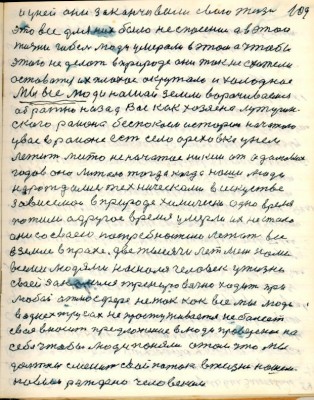 109
и у ней они заканчивали свою жизнь
это все для них было не спасение а в этой
жизни гибель люди умерали в этом а чтобы
этого не делать в природе они так не схотели
оставать их плохое окружало и холодное
Мы все люди нашей земли ворочиваемся
обратно назад Вас как хозяево Лутугин-
ского района беспокоит история начатого
у вас в районе ест село ореховка у нем
лежит нито не начатое никем от
годов оно лигло тогда когда наши люди
технически в искустве
зависемая в природе химически одно время
пожили а другое время умерли их не стало
они со своего потребностию лежат все
в земли в прахе две тысячи лет меж нами
всеми людями нашолся человек у жизни
своей тренеровано ходит при
любой атмосфере не так как все мы люди
в одних трусах не простуживается не болеет
свое вносит предложение в люди проведеное на
себе чтобы люди поняли о том что мы
должны сменит свой поток в жизни нашем
новым рождено человеком